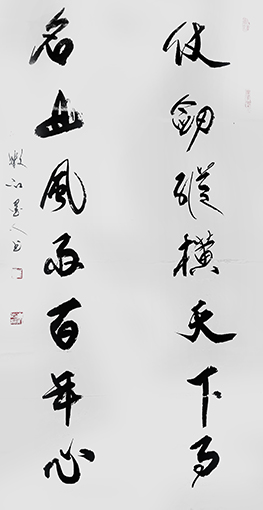 仗劍縱橫天下
名山風雨百年心